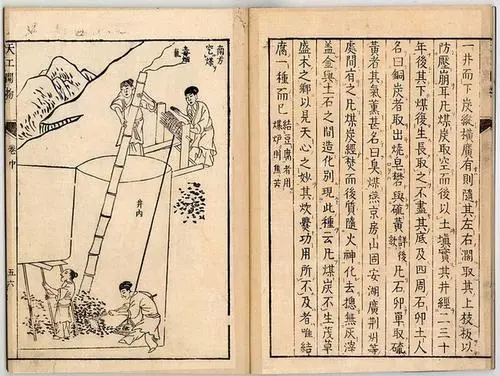 一井而下炭縱橫廣有則隨其左右濶取其上枝板以
防壓崩耳凡煤炭取空而後以土填實其井經二三十
年後其下煤復生長取之不盡其底及四周石卵土人
名曰銅炭者取出燒皂礬與硫黃詳後款凡石卵單取硫
黃者其氣薰甚名曰臭煤燕京房山固安湖廣荆州等
處間有之凡煤炭經焚而後質隨火神化去摠無灰滓
盖金與土石之間造化別現此種云凡煤炭不生茂草
盛木之鄉以見天心之妙其炊爨功用所不及者唯結
腐一種而已結豆腐者用煤爐則焦苦
南方
穵煤
井內
天工開物
卷中
五六